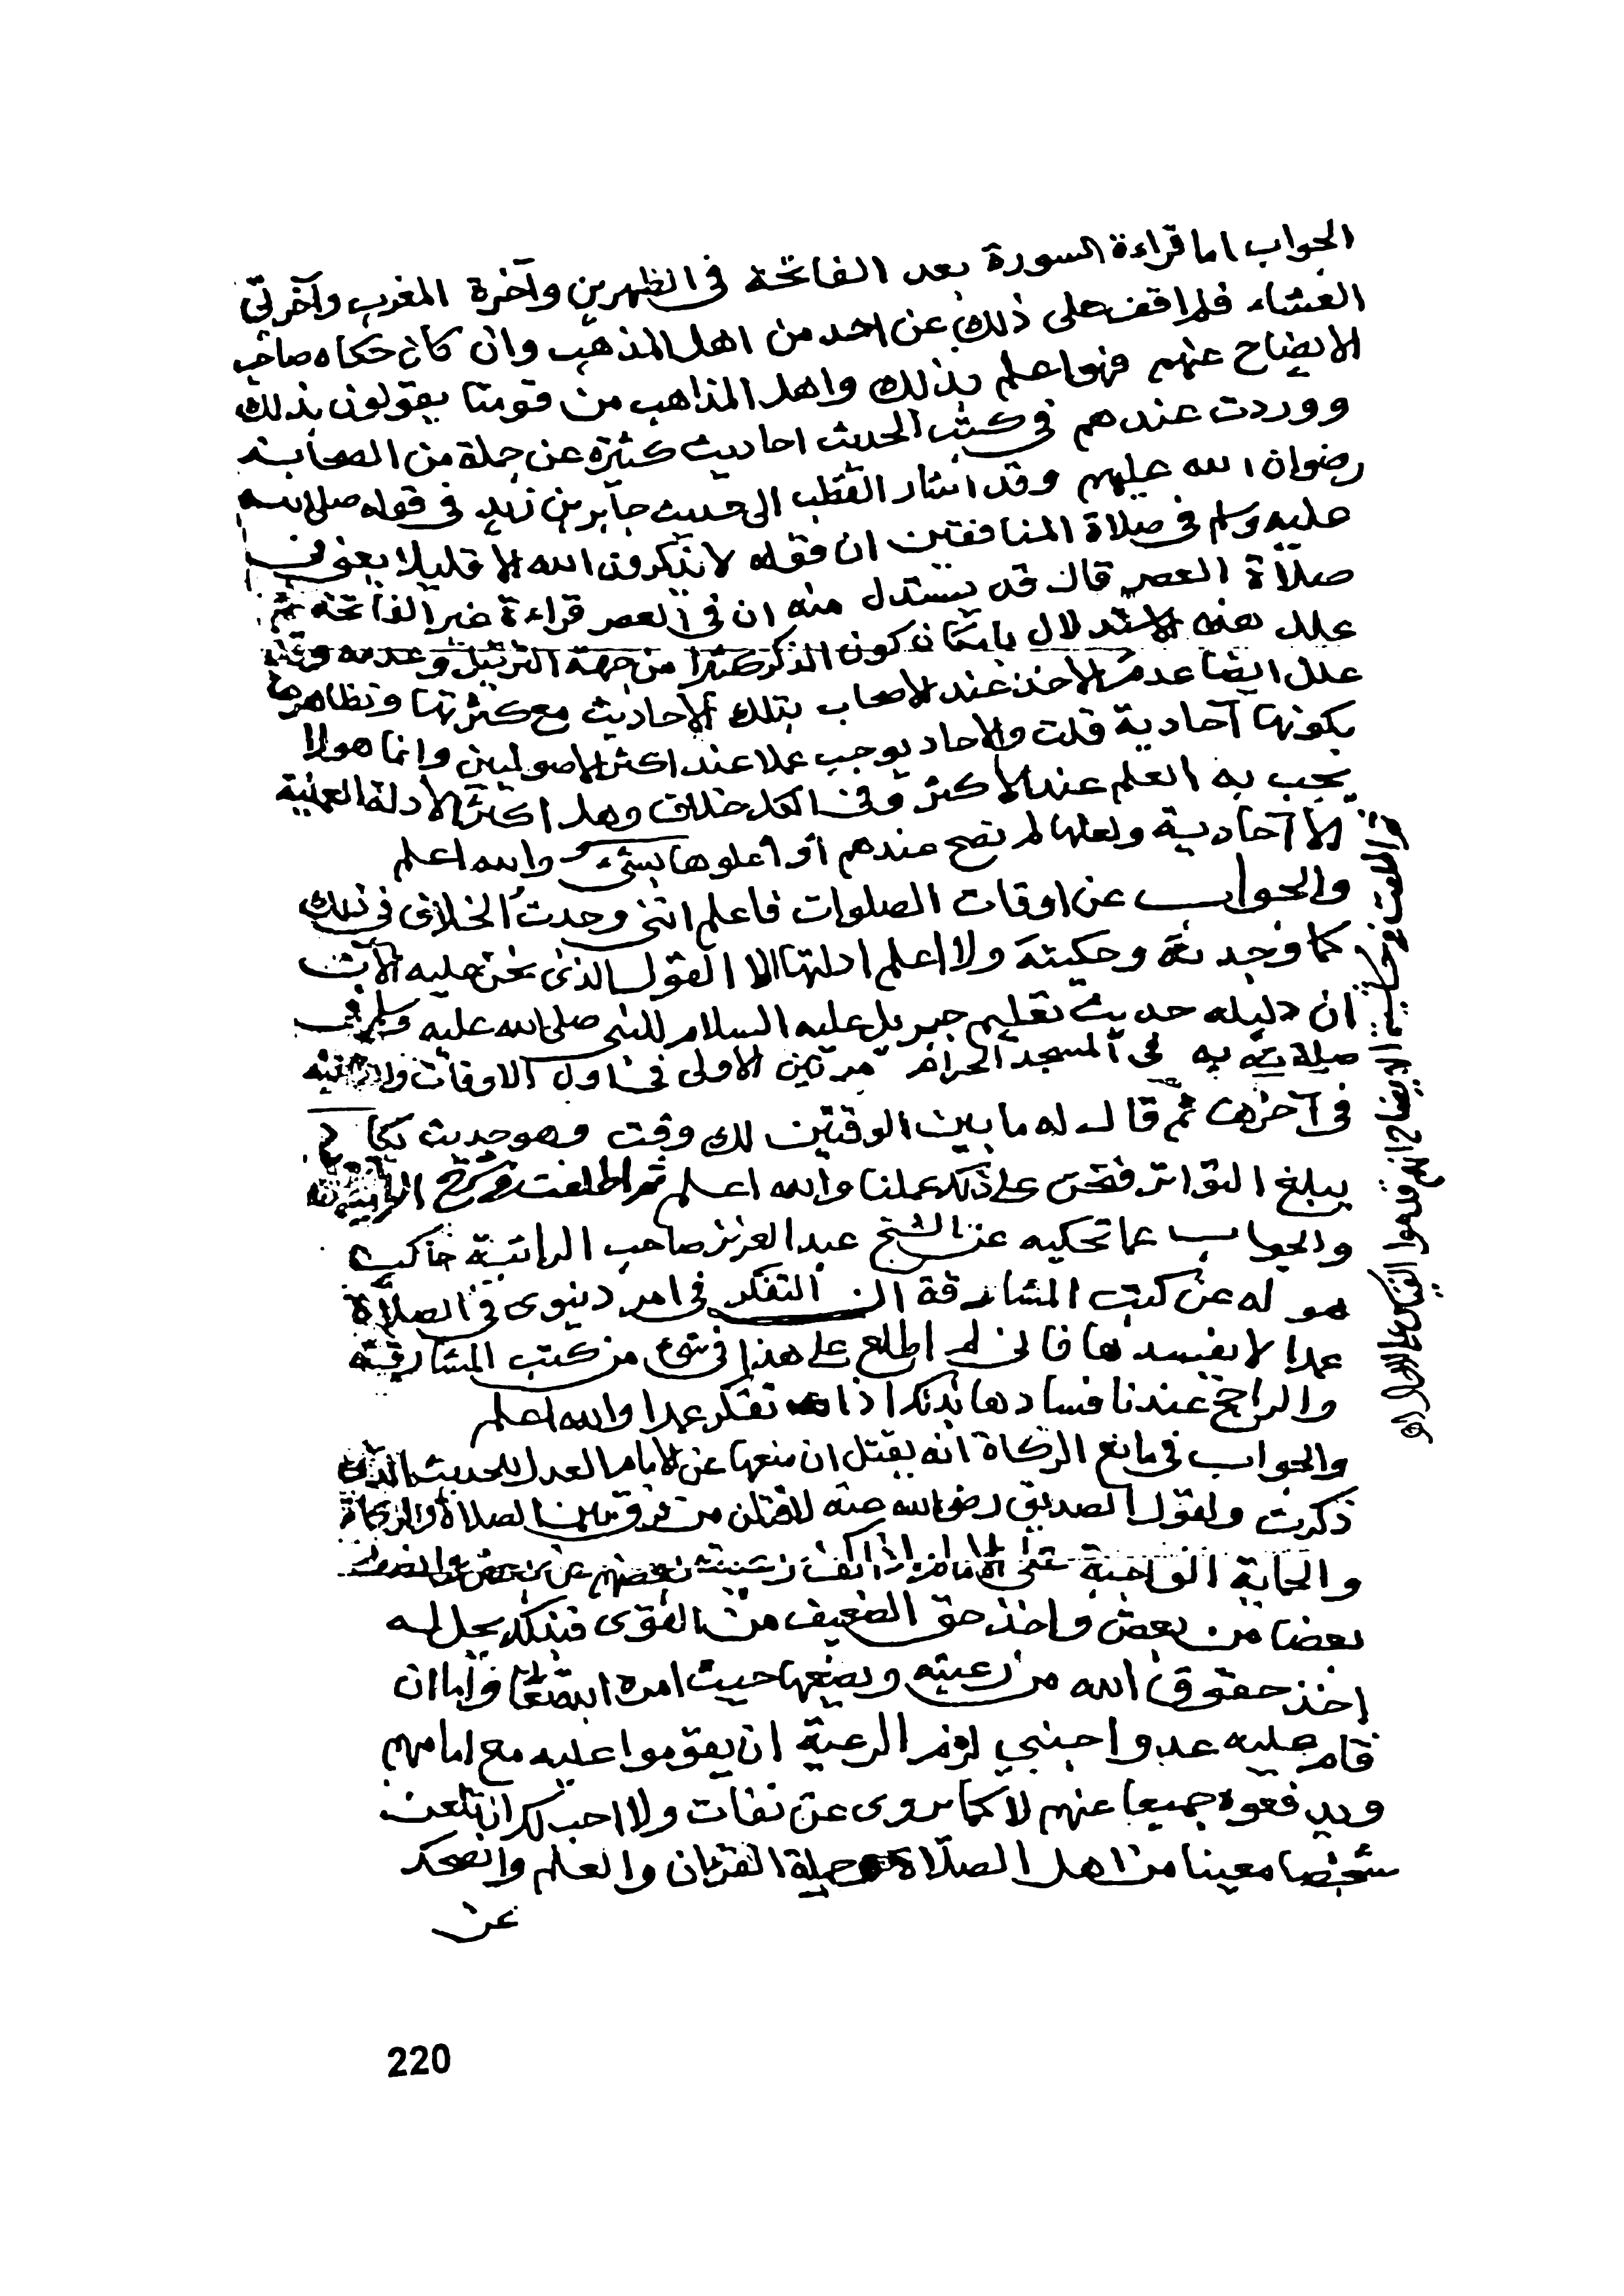 الجواب اما قراءة السورة بعد الفاتحة في الظهرين وآخرة المغرب وآخرتي
العشاء فلم اقف على ذلك عن احد من اهل المذهب وان كان حكاه صاحب
الايضاح عنهم فهو اعلم بذلك واهل المذاهب من قومنا يقولون بذلك
ووردت عندهم في كتب الحديث احاديث كثيرة عن جملة من الصحابة
رضوان الله عليهم وقد اشار القطب الى حديث جابر بن زيد في قوله صلى الله
عليه وسلم في صلاة المنافقين ان قوله لا يذكرون الله الا قليلا يعني في
صلاة العصر قال قد يستدل منه ان في العصر قراءة غير الفاتحة ثم
علل هذه الاستدلال بامكان كون الذكر كثيرا من جهة الترتيل وعدمه وقد
علل ايضا عدم الاخذ عند الاصحاب بتلك الاحاديث مع كثرتها وتظاهرها
بكونها آحادية قلت والاحاد يوجب عملا عند اكثر الاصوليين وانما هو لا
يجب به العلم عند الاكثر وفي الكل خلاف وهل اكثر الادلة العملية
الا آحادية ولعلها لم تصح عندهم أو أعلوها بشيء والله اعلم
والجواب عن اوقات الصلوات فاعلم انني وجدت الخلاف في ذلك
كما وجدته وحكيته ولا اعلم ادلتها الا القول الذي نحن عليه الآن
ان دليله حديث تعليم جبريل عليه السلام للنبي صلى الله عليه وسلم في
صلاته به في المسجد الحرام مرتين الاولى في اول الاوقات والثانية
في آخرها ثم قال له ما بين الوقتين لك وقت وهو حديث يكاد
يبلغ التواتر فنحن على ذلك عملنا والله اعلم ثم اطلعت في شرح الرائية
والجواب عما تحكيه عن الشيخ عبد العزيز صاحب الرائية حاكيا
هو له عن كتب المشارقة ان التفكر في امر دنيوي في الصلاة
عمدا لا يفسدها فاني لم اطلع على هذا في شيء من كتب المشارقة
والراجح عندنا فسادها بذلك اذا تفكر عمدا والله اعلم
والجواب في مانع الزكاة انه يقتل ان منعها عن الامام العدل للحديث الذي
ذكرت ولقول الصديق رضي الله عنه لاقتلن من فرق بين الصلاة والزكاة
والحماية الواجبة على الامام اذا كف رعيته بعضهم عن بعض وانصف
بعضا من بعض واخذ حق الضعيف من القوي فبذلك يحل له
اخذ حقوق الله من رعيته ويضعها حيث امره الله تعالى واما ان
قام عليه عدو اجنبي لزم الرعية ان يقوموا عليه مع امامهم
ويدفعوه جميعا عنهم لا كما يروى عن نفاث ولا احب لك ان تلعن
شخصا معينا من اهل الصلاة وحملة القرآن والعلم وانصحك
عن
ثم اطلعت في حاشية الايضاح انهم قدموا
220